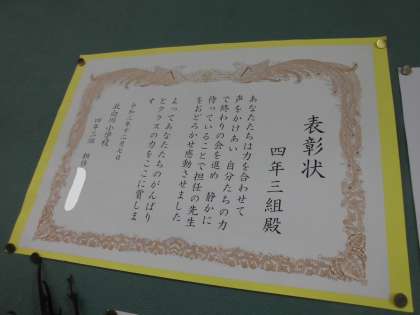 表彰状
四年三組殿
あなたたちは力を合わせて
声をかけあい 自分たちの力
で終わりの会を進め 静かに
待っていることで担任の先生
をおどろかせ感動させました
よってあなたたちのがんばり
とクラスの力をここに賞しま
す
令和三年十二月七日
北白川小学校
四年三組 担